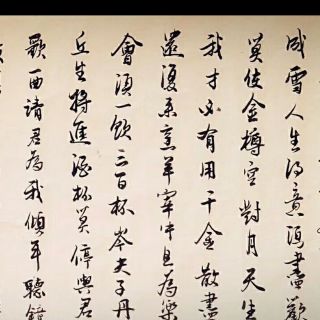 成雪人生得意須盡歡
莫使金樽空對月天生
我才必有用千金散盡
還復來烹羊宰牛且為樂
會須一飲三百杯岑夫子丹
丘生將進酒杯莫停與君
歌一曲請君為我傾耳聽鐘